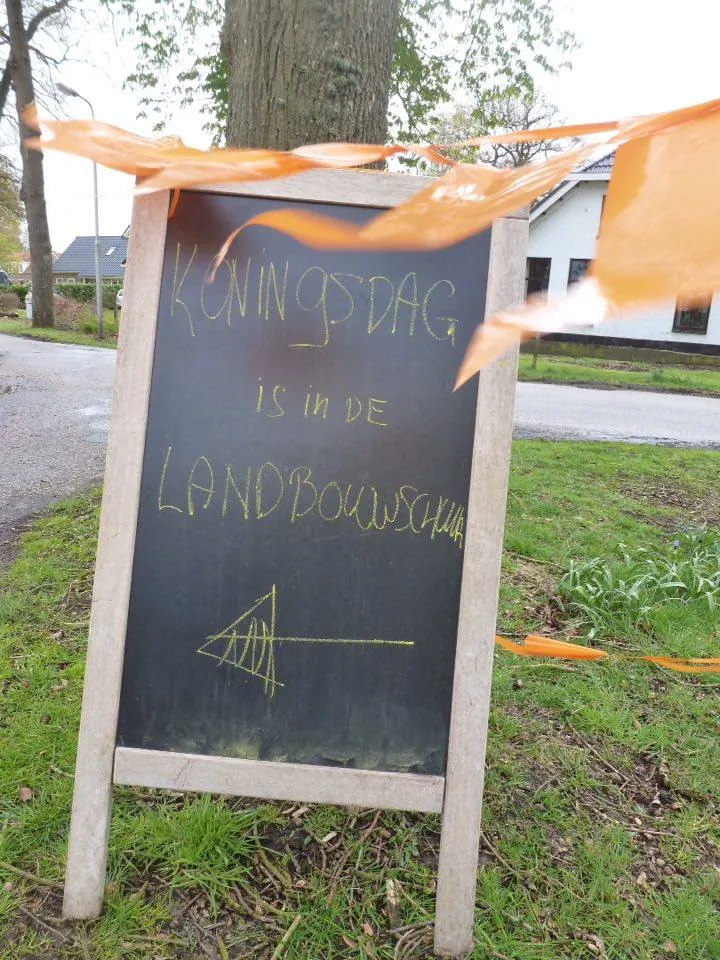 KONINgSDAG
is in DE
LANDBOUWSCHUUR